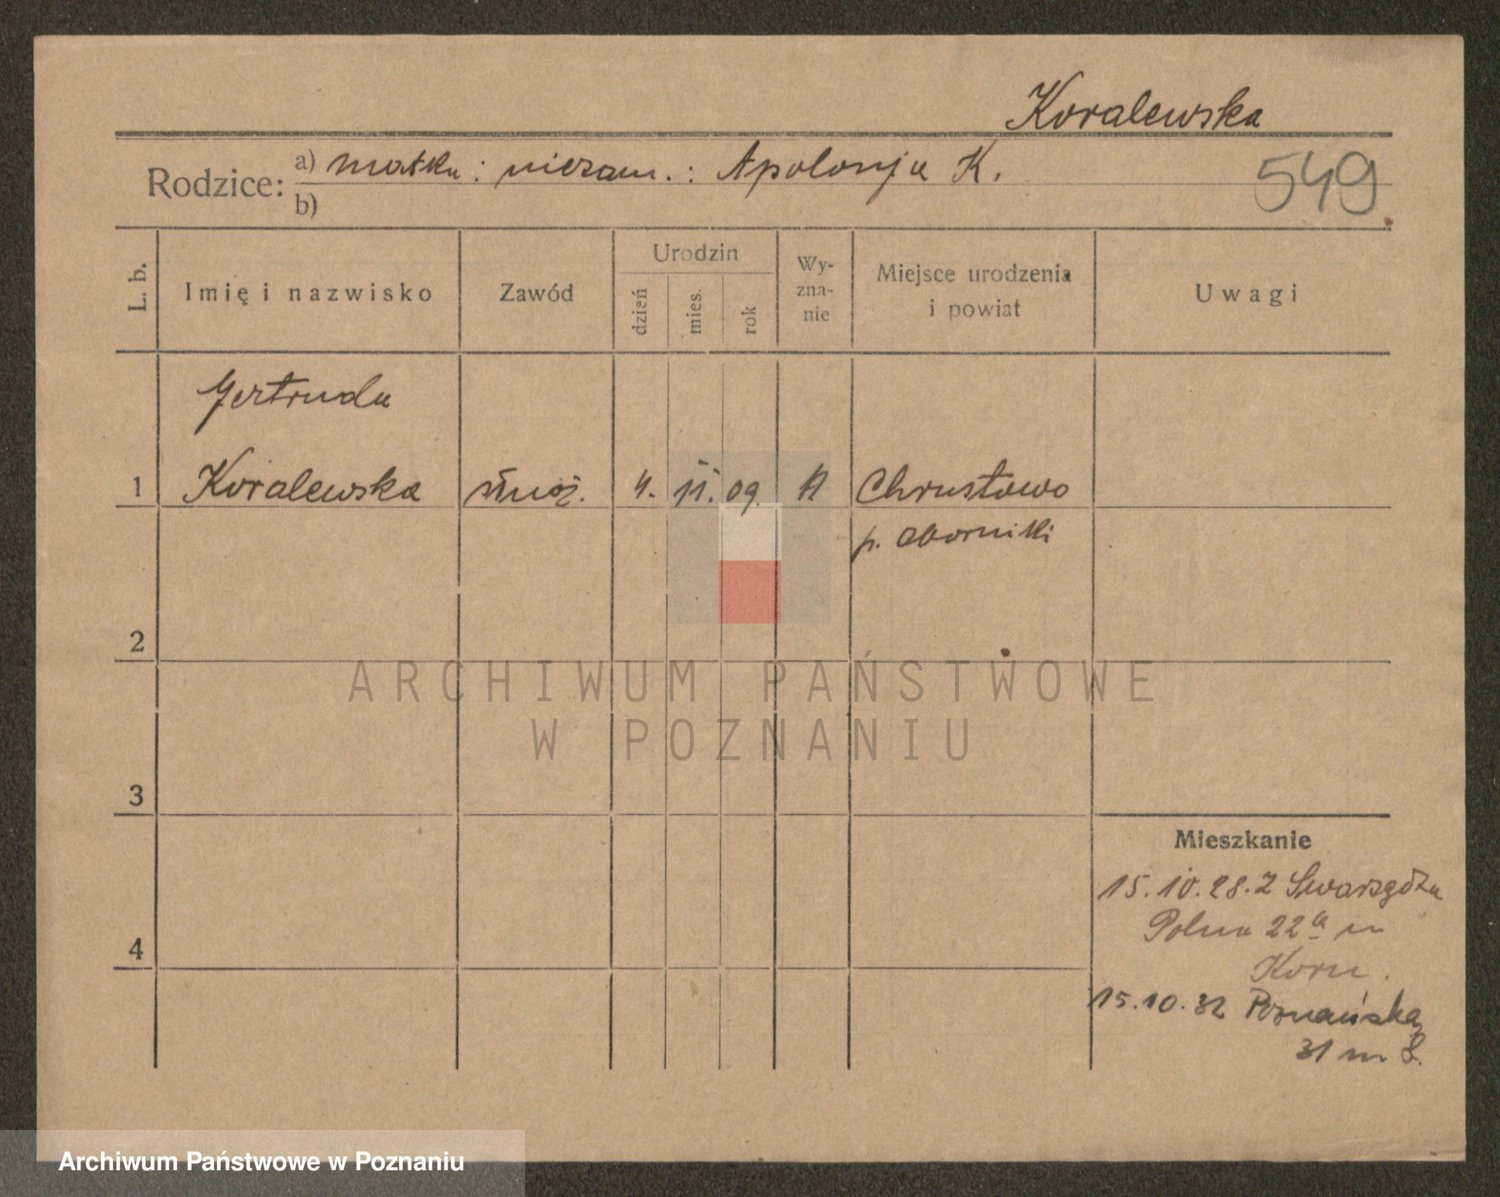 Koralewska
Rodzice: a) matka: niezam.: Apolonja K.
b)
549
L. b.
Imię i nazwisko
Zawód
Urodzin
dzień
mies.
rok
Wy-
zna-
nie
Miejsce urodzenia
i powiat
Uwagi
Gertruda
1 Koralewska służ. 4. 11. 09. K Chrustowo
p. Oborniki
2
3
4
Mieszkanie
15.10.28. Z Swarzędza
Polna 22a m
Korn.
15.10.32 Poznańska
31 m 8.
ARCHIWUM PAŃSTWOWE
W POZNANIU
Archiwum Państwowe w Poznaniu